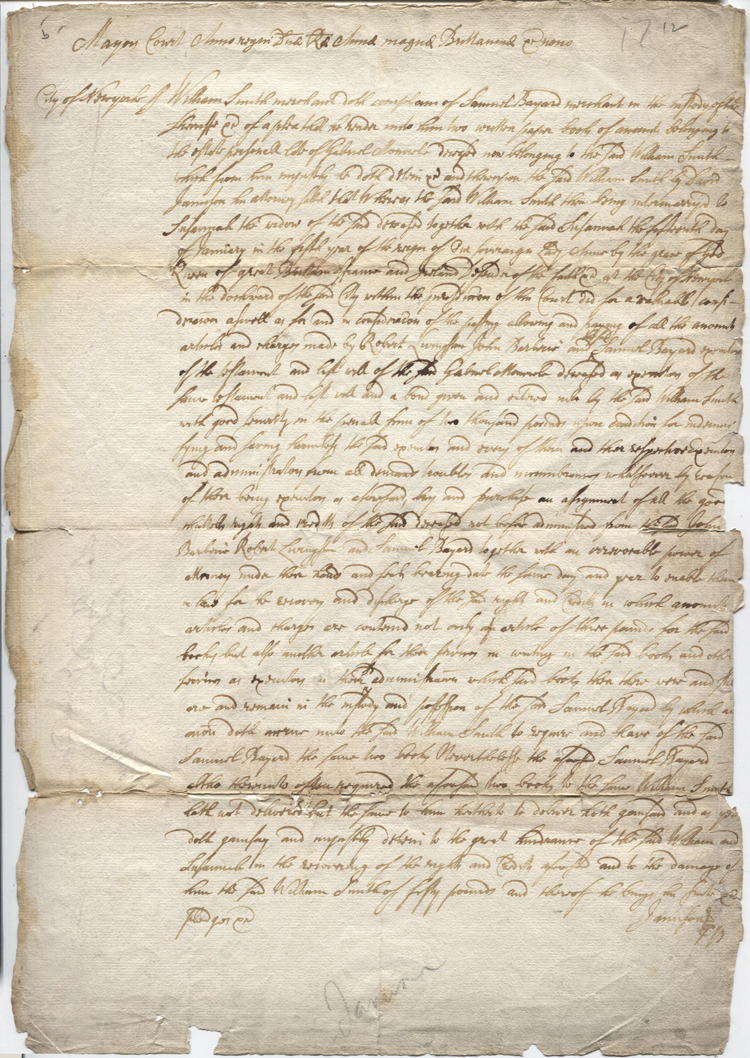 1712
Mayors Court Anno regni Dnæ Ræ Annæ magnæ Brittaniæ &c nono
City of Newyorke ss William Smith merchant doth complain of Samuel Bayard merchant in the custody of the
Sheriffe &c of a plea that he render unto him two written paper books of accounts belonging to
the estate personall late of Gabriel Monvele deceased now belonging to the said William Smith
which from him unjustly he doth detein &c and thereupon the said William Smith by David
Jamison his attorney saith that Whereas the said William Smith then being intermarryed to
Susannah the widow of the said deceased together with the said Susannah the fifteenth day
of January in the first year of the reign of Our soveraign Lady Anne by the grace of God
Queen of great Brittain france and Ireland defender of the faith &c at the City of Newyork
in the dockward of the said City within the jurisdiccon of this Court did for a valuable consi-
deracon aswell as for and in consideracon of the passing allowing and paying of all the accounts
articles and charges made by Robert Livingston John Barberie and the said Samuel Bayard executors
of the testament and last will of the said Gabriel Monvele deceased as executors of the
same testament and last will and a bond given and entred into by the said William Smith
with good security in the penall sum of two thousand pounds upon condicon for indemni
fying and saving harmless the said executors and every of them and their respective executors
and administrators from all demands troubles and incumbrances whatsoever by reason
of their being executors as aforesaid, buy and purchase an assignment of all the goods
chattels rights and credits of the said deceased not before administred from the said John
Barberie Robert Livingston and Samuel Bayard together with an irrevocable power of
Attorney under their hands and seals bearing date the same day and year to enable them
in law for the recovery and discharge of the said rights and credits in which accounts
articles and charges are conteined not only an article of three pounds for the said
books but also another article for their services in writing in the said books and other
services as executors in their administracon which said books then there were and still
are and remain in the custody and possession of the said Samuel Bayard by which an
accon doth accrue unto the said William Smith to require and have of the said
Samuel Bayard the same two books Nevertheless the aforesd Samuel Bayard
Altho thereunto often required the aforesaid two books to the same William Smith
hath not delivered but the same to him hitherto to deliver hath gainsaid and as yet
doth gainsay and unjustly detein to the great hinderance of the said William and
Susannah in the recovering of the rights and Credits aforesd and to the damage of
him the said William Smith of fifty pounds and thereof he brings his suite &c
Pledges &c
Jamison
Jamison